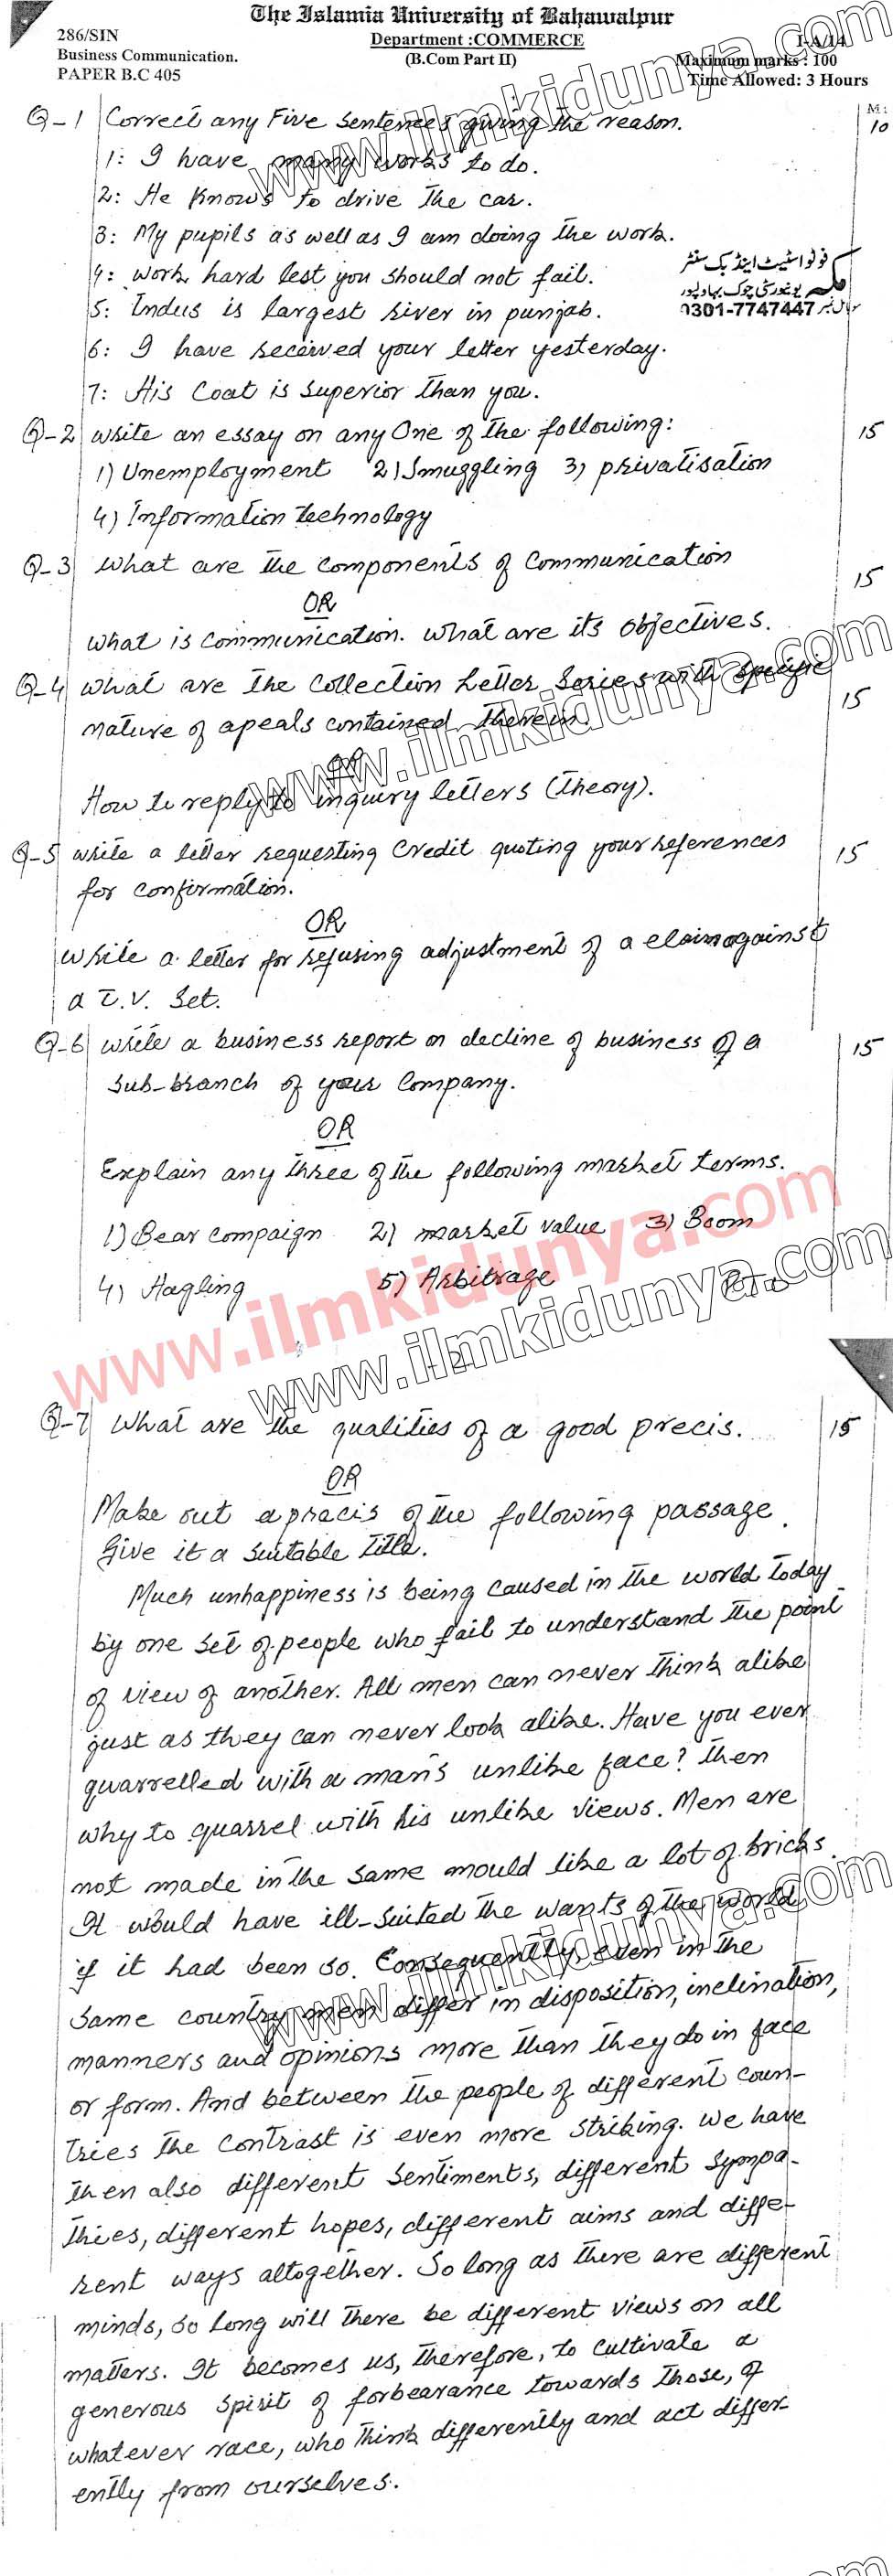 The Islamia University of Bahawalpur
286/SIN
Department :COMMERCE
I-A/14
Business Communication.
(B.Com Part II)
Maximum marks : 100
PAPER B.C 405
Time Allowed: 3 Hours
M:
Q-1 Correct any Five sentences giving the reason. 10
1: I have many works to do.
2: He knows to drive the car.
3: My pupils as well as I am doing the work.
فوٹو اسٹیٹ اینڈ بک سنٹر
4: work hard lest you should not fail.
یونیورسٹی چوک بہاولپور
5: Indus is largest river in punjab.
0301-7747447
6: I have received your letter yesterday.
7: His Coat is superior than you.
Q-2 write an essay on any One of the following: 15
1) Unemployment 2) Smuggling 3) privatisation
4) Information technology
Q-3 what are the components of communication
15
OR
what is communication. what are its objectives.
Q-4 what are the Collection Letter Series with specific
15
nature of apeals contained therein.
OR
How to reply to inquiry letters (theory).
Q-5 write a letter requesting Credit quoting your references 15
for confirmation.
OR
write a letter for refusing adjustment of a claim against
a T.V. Set.
Q-6 write a business report on decline of business of a 15
sub-branch of your Company.
OR
Explain any three of the following market terms.
1) Bear compaign 2) market value 3) Boom
4) Hagling 5) Arbitrage
-2-
www.ilmkidunya.com
www.ilmkidunya.com
www.ilmkidunya.com
www.ilmkidunya.com
www.ilmkidunya.com
Q-7 What are the qualities of a good precis. 15
OR
Make out a precis of the following passage.
Give it a suitable title.
Much unhappiness is being caused in the world today
by one set of people who fail to understand the point
of view of another. All men can never think alike
just as they can never look alike. Have you ever
quarrelled with a man's unlike face? Then
why to quarrel with his unlike views. Men are
not made in the same mould like a lot of bricks.
It would have ill-suited the wants of the world
if it had been so. Consequently, even in the
same country men differ in disposition, inclination,
manners and opinions more than they do in face
or form. And between the people of different coun-
tries the contrast is even more striking. we have
then also different sentiments, different sympa-
thies, different hopes, different aims and diffe-
rent ways altogether. So long as there are different
minds, so long will there be different views on all
matters. It becomes us, therefore, to cultivate a
generous spirit of forbearance towards those, of
whatever race, who think differently and act differ-
ently from ourselves.